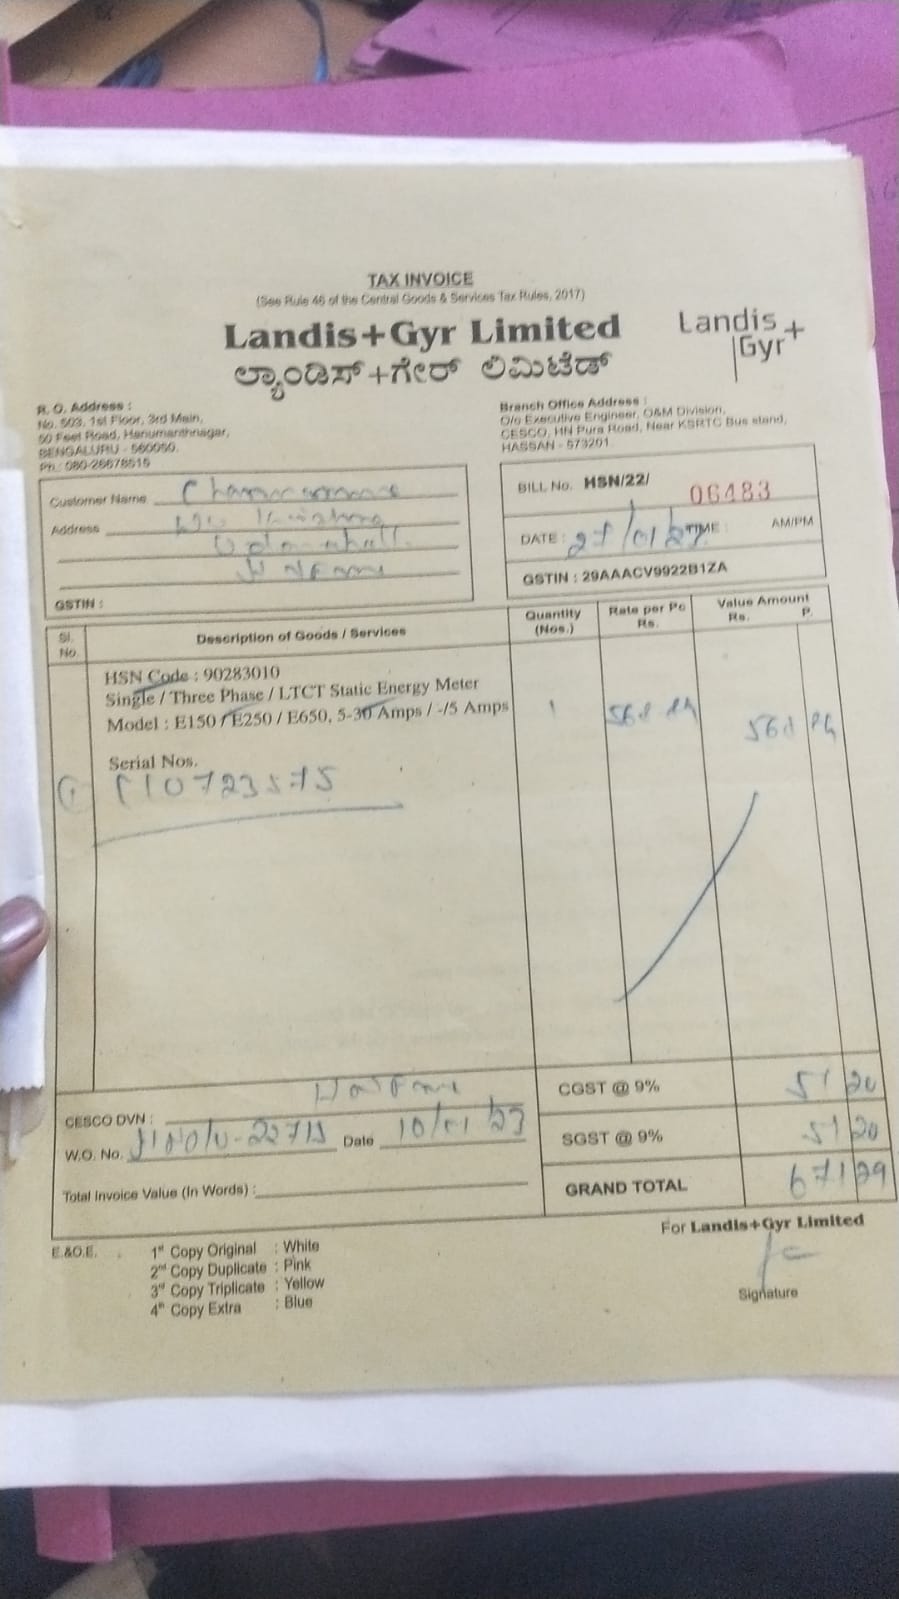 TAX INVOICE
(See Rule 46 of the Central Goods & Services Tax Rules, 2017)
Landis+Gyr Limited
ಲ್ಯಾಂಡಿಸ್+ಗೇರ್ ಲಿಮಿಟೆಡ್
Landis+
Gyr
R. O. Address :
No. 503, 1st Floor, 3rd Main,
50 Feet Road, Hanumanthnagar,
BENGALURU - 560050.
Ph.: 080-26678515
Branch Office Address :
O/o Executive Engineer, O&M Division,
CESCO, HN Pura Road, Near KSRTC Bus stand,
HASSAN - 573201.
Customer Name
Address
GSTIN :
BILL No. HSN/22/ 06483
DATE : 27/01/23 TIME : AM/PM
GSTIN : 29AAACV9922B1ZA
Sl. No. Description of Goods / Services Quantity (Nos.) Rate per Pc Rs. Value Amount Rs. P.
HSN Code : 90283010
Single / Three Phase / LTCT Static Energy Meter
Model : E150 / E250 / E650, 5-30 Amps / -/5 Amps 1
Serial Nos.
10723575
CESCO DVN :
W.O. No. Date 10/01/23
Total Invoice Value (In Words) :
CGST @ 9% 51 20
SGST @ 9% 51 20
GRAND TOTAL 671 29
For Landis+Gyr Limited
Signature
E.&O.E. 1st Copy Original : White
2nd Copy Duplicate : Pink
3rd Copy Triplicate : Yellow
4th Copy Extra : Blue